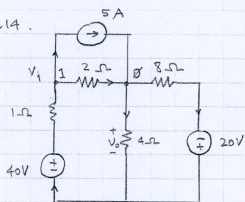 .14.
5 A
→
V₁ 1 2 Ω 0 8 Ω
1 Ω
+
V₀ 4 Ω
-
- +
20V
40V + -